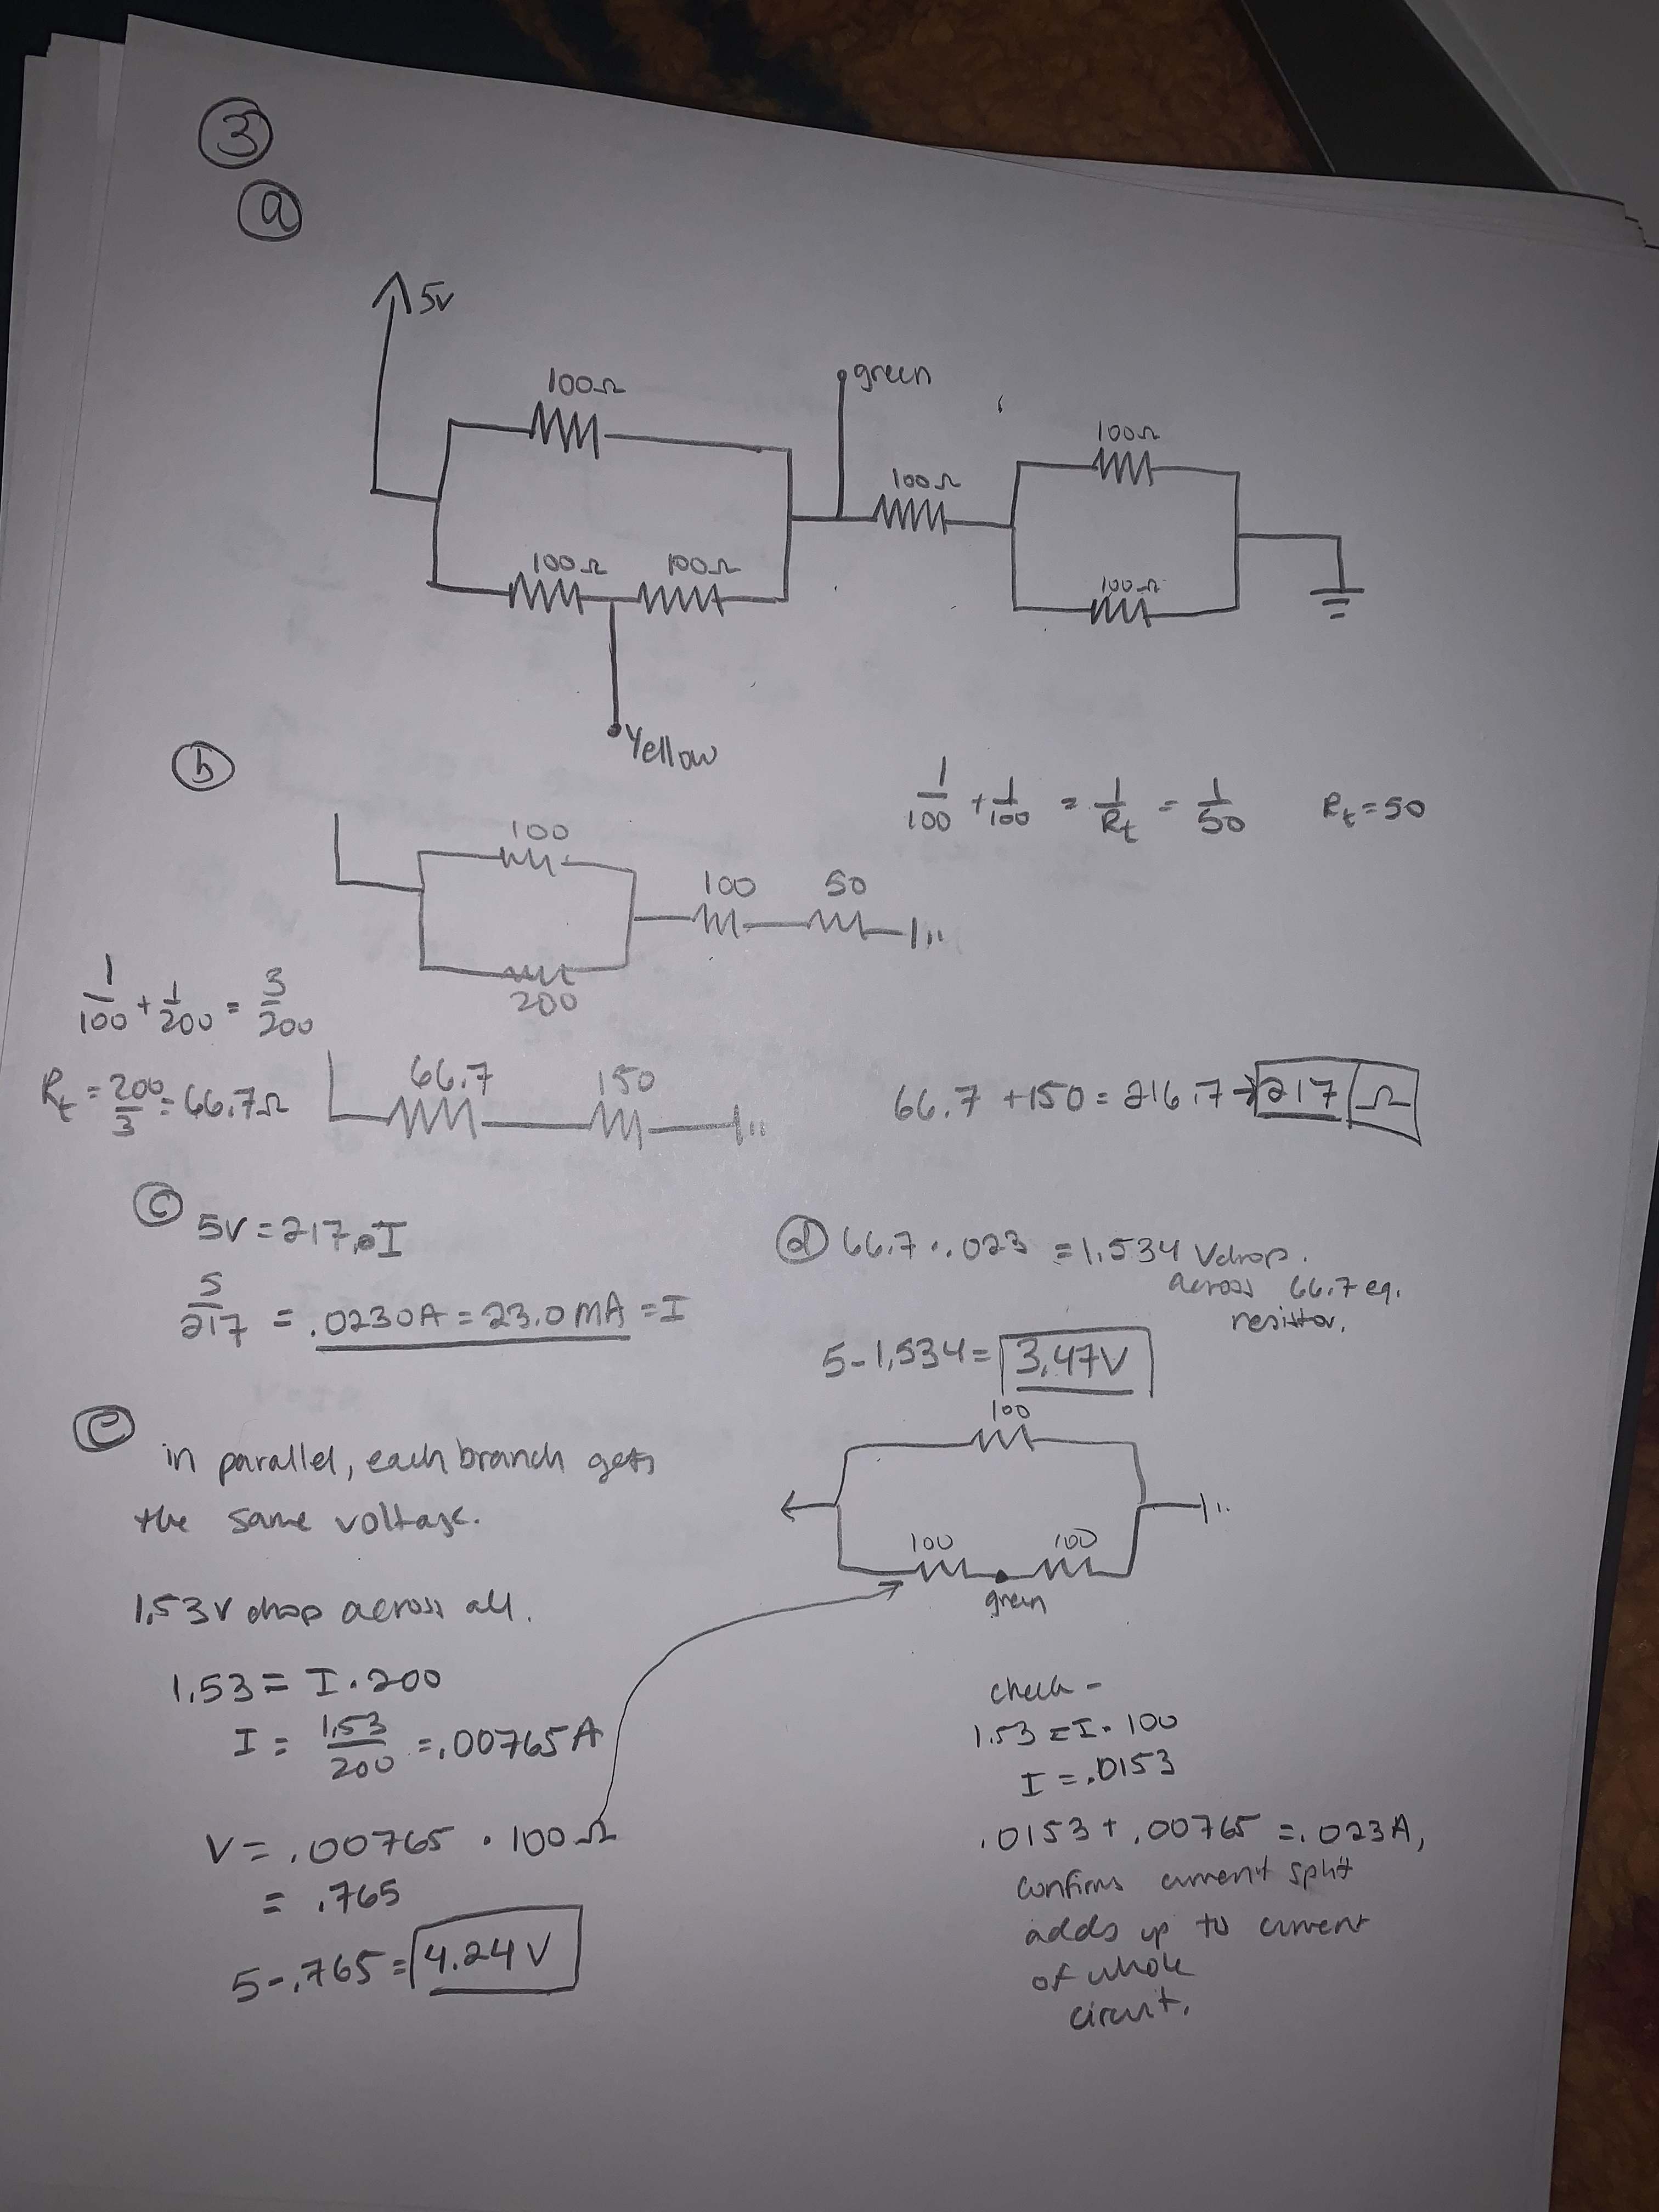 3
a
5v
100Ω
green
100Ω
100Ω
100Ω
100Ω
100Ω
Yellow
b
1/100 + 1/100 = 1/Rt = 1/50 Rt = 50
100
100 50
200
1/100 + 1/200 = 3/200
Rt = 200/3 = 66.7Ω
66.7 150
66.7 + 150 = 216.7 → 217 Ω
c
5V = 217 • I
5/217 = .0230A = 23.0 mA = I
d 66.7 • .023 = 1.534 Vdrop.
across 66.7 eq.
resistor.
5 - 1.534 = 3.47V
e
in parallel, each branch gets
the same voltage.
1.53V drop across all.
1.53 = I • 200
I = 1.53/200 = .00765 A
V = .00765 • 100Ω
= .765
5 - .765 = 4.24 V
100
100 100
green
check -
1.53 = I • 100
I = .0153
.0153 + .00765 = .023A,
confirms current split
adds up to current
of whole
circuit.